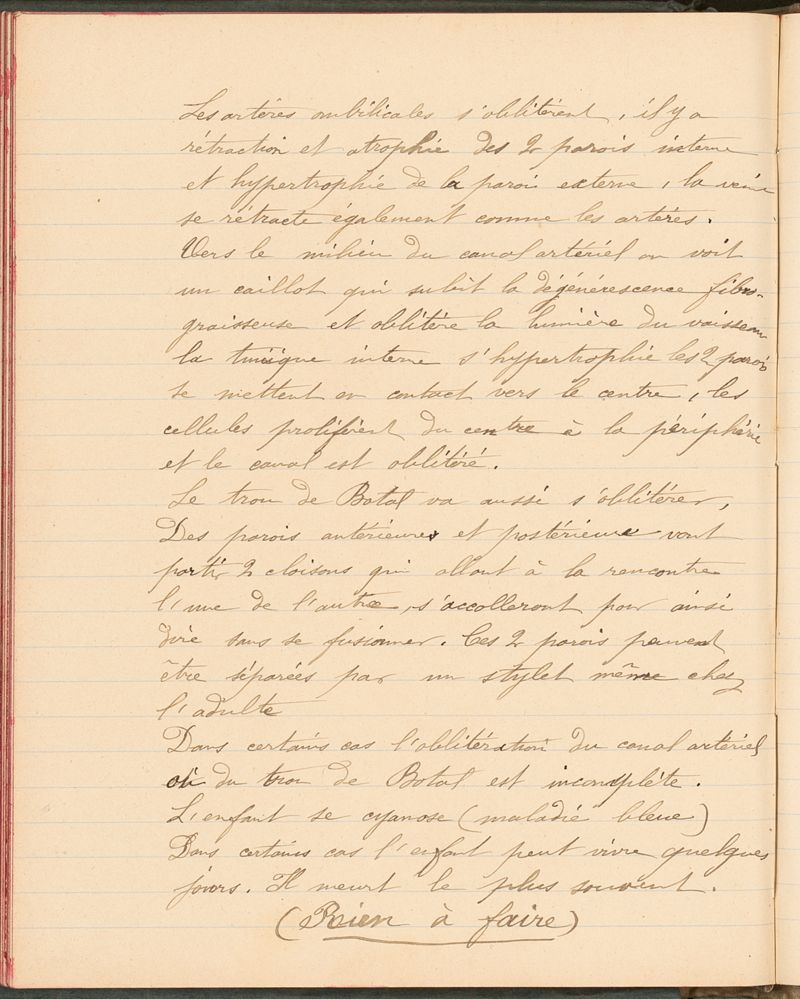 Les artères ombilicales s'oblitèrent, il y a
rétraction et atrophie des 2 parois interne
et hypertrophie de la paroi externe, la veine
se rétracte également comme les artères.
Vers le milieu du canal artériel on voit
un caillot qui subit la dégénérescence fibro-
graisseuse et oblitère la lumière du vaisseau
la tunique interne s'hypertrophie les 2 parois
se mettent en contact vers le centre, les
cellules prolifèrent du centre à la périphérie
et le canal est oblitéré.
Le trou de Botal va aussi s'oblitérer,
Des parois antérieures et postérieure vont
partir 2 cloisons qui allant à la rencontre
l'une de l'autre, s'accolleront pour ainsi
dire sans se fusionner. Ces 2 parois peuvent
être séparées par un stylet même chez
l'adulte
Dans certains cas l'oblitération du canal artériel
où du trou de Botal est incomplète.
L'enfant se cyanose (maladie bleue)
Dans certains cas l'enfant peut vivre quelques
jours. Il meurt le plus souvent.
(Rien à faire)